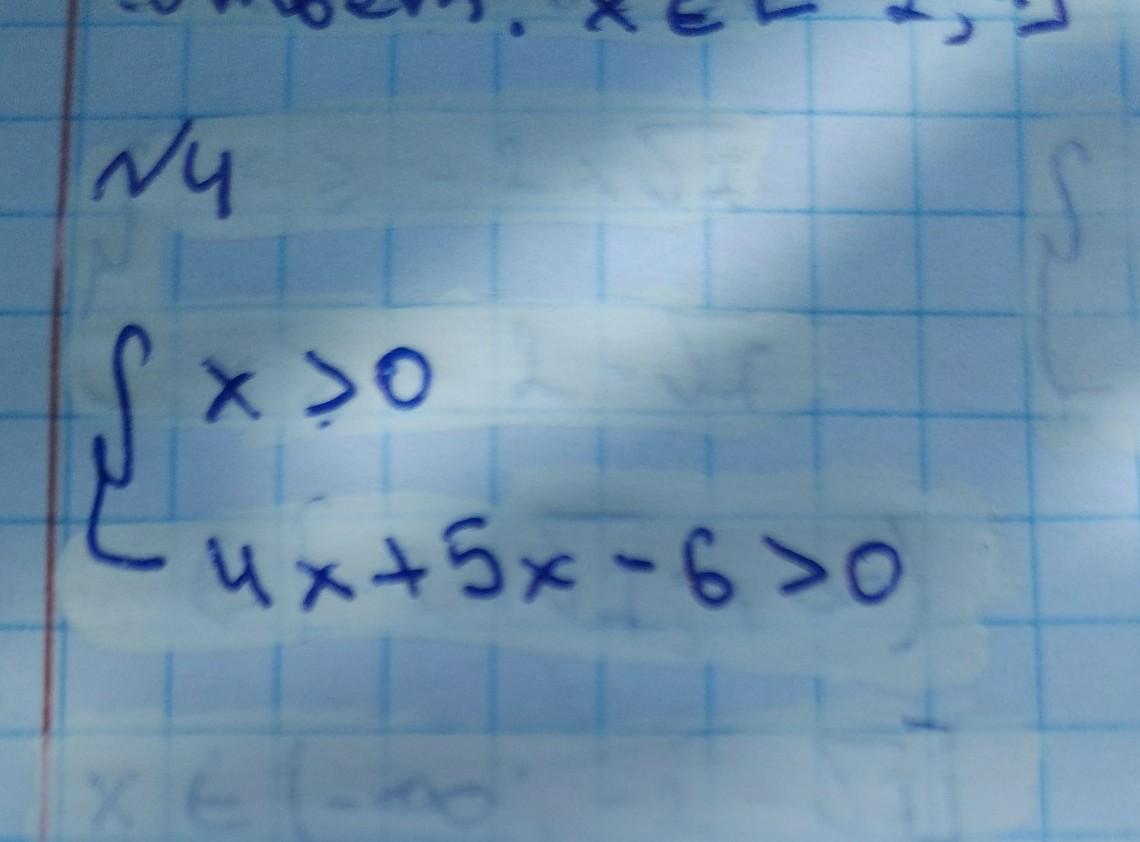 x ∈ [
№4
{ x ≥ 0
4x + 5x - 6 > 0
x ∈ (-∞